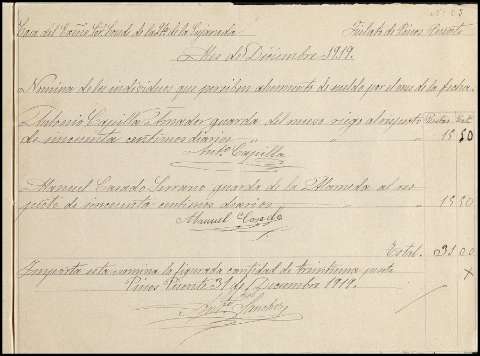 Casa del Excmo Sor Conde de la Pta de la Quintería Fielato de Pinos Puente
Mes de Diciembre 1919.
Nómina de los individuos que perciben aumento de sueldo por el mes de la fecha.
Antonio Capilla Amador guarda del nuevo riego al respecto Pesetas Cts
de cincuenta centimos diarios " " " 15 50
Anto Capilla
Manuel Casado Serrano guarda de la Alameda al res
pecto de cincuenta centimos diarios " " 15 50
Manuel Casado
Total. 31 00
Importa esta nomina la figurada cantidad de treintiuna pesetas
Pinos Puente 31 de Diciembre 1919.
Sanchez